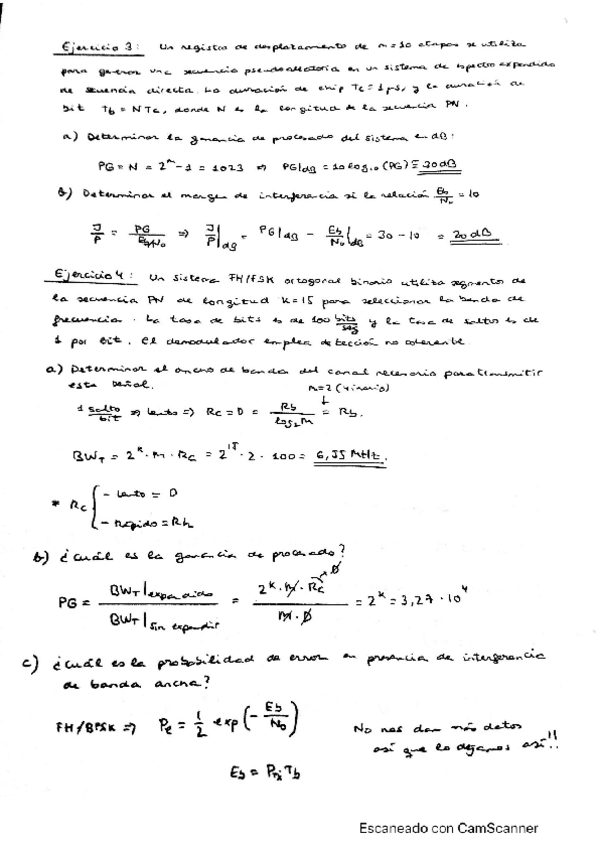 Ejercicio 3: Un registro de desplazamiento de m=10 etapas se utiliza
para generar una secuencia pseudoaleatoria en un sistema de espectro expandido
de secuencia directa. La duración de chip Tc = 1 μs, y la duración de
bit Tb = N Tc, donde N es la longitud de la secuencia PN.
a) Determinar la ganancia de procesado del sistema en dB:
PG = N = 2^m - 1 = 1023 ⇒ PG|dB = 10 log10 (PG) ≅ 30 dB
b) Determinar el margen de interferencia si la relación Eb/No = 10
J/P = PG/(Eb/No) ⇒ J/P|dB = PG|dB - Eb/No|dB = 30 - 10 = 20 dB
Ejercicio 4: Un sistema FH/FSK ortogonal binario utiliza segmentos de
la secuencia PN de longitud K=15 para seleccionar la banda de
frecuencia. La tasa de bits es de 100 bits/seg y la tasa de saltos es de
1 por bit. El demodulador emplea detección no coherente.
a) Determinar el ancho de banda del canal necesario para transmitir
esta señal.
M=2 (binario)
1 salto/bit ⇒ lento ⇒ Rc = D = Rb/log2 M = Rb.
BWT = 2^K · M · Rc = 2^15 · 2 · 100 = 6,55 MHz.
* Rc { - lento = D
- rápido = Rh
b) ¿Cuál es la ganancia de procesado?
PG = BWT|expandido / BWT|sin expandir = 2^K · M · Rc / M · D = 2^K = 3,27 · 10^4
D
c) ¿Cuál es la probabilidad de error en presencia de interferencia
de banda ancha?
FH/BFSK ⇒ Pe = 1/2 exp(- Eb/No)
No nos dan más datos
así que lo dejamos así!!
Eb = Tb
Escaneado con CamScanner